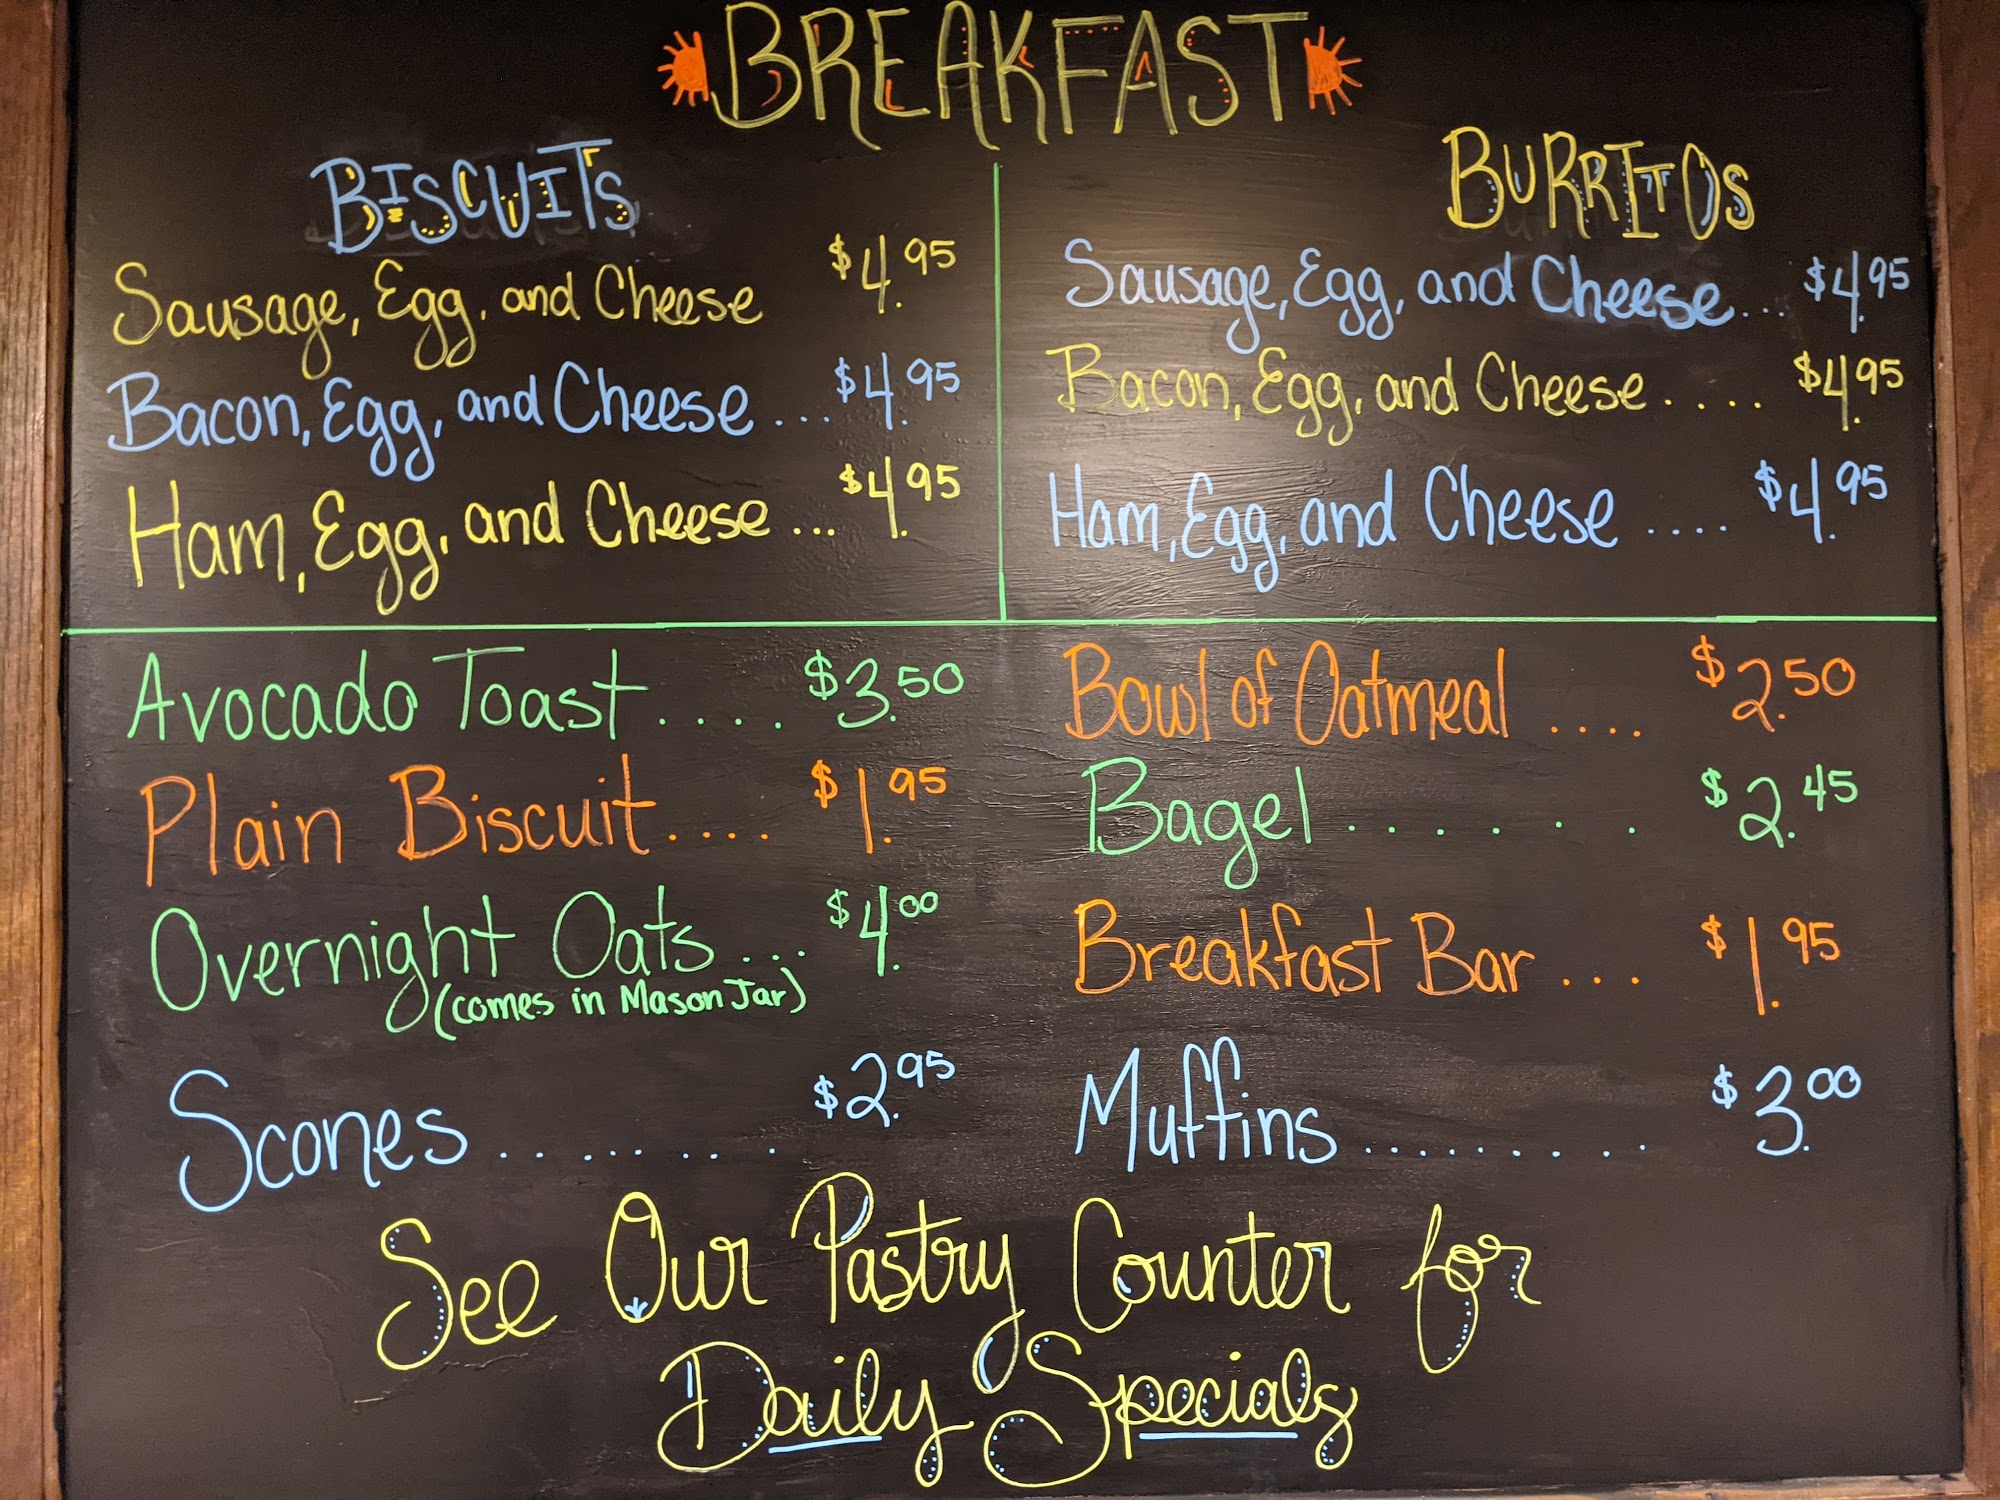 BREAKFAST
BISCUITS
Sausage, Egg, and Cheese $4.95
Bacon, Egg, and Cheese ... $4.95
Ham, Egg, and Cheese ... $4.95
BURRITOS
Sausage, Egg, and Cheese... $4.95
Bacon, Egg, and Cheese .... $4.95
Ham, Egg, and Cheese .... $4.95
Avocado Toast .... $3.50
Plain Biscuit .... $1.95
Overnight Oats ... $4.00
(comes in Mason Jar)
Scones ........ $2.95
Bowl of Oatmeal .... $2.50
Bagel ...... $2.45
Breakfast Bar ... $1.95
Muffins .......... $3.00
See Our Pastry Counter for
Daily Specials